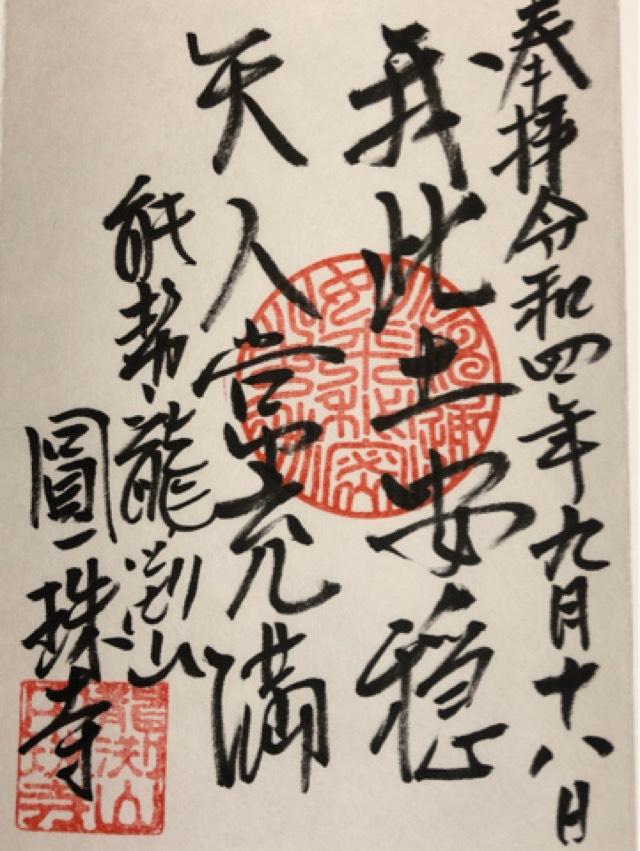 奉拝 令和四年九月十八日
我此土安穏
天人常充満
能勢 龍渕山
圓珠寺
龍渕山
円珠寺